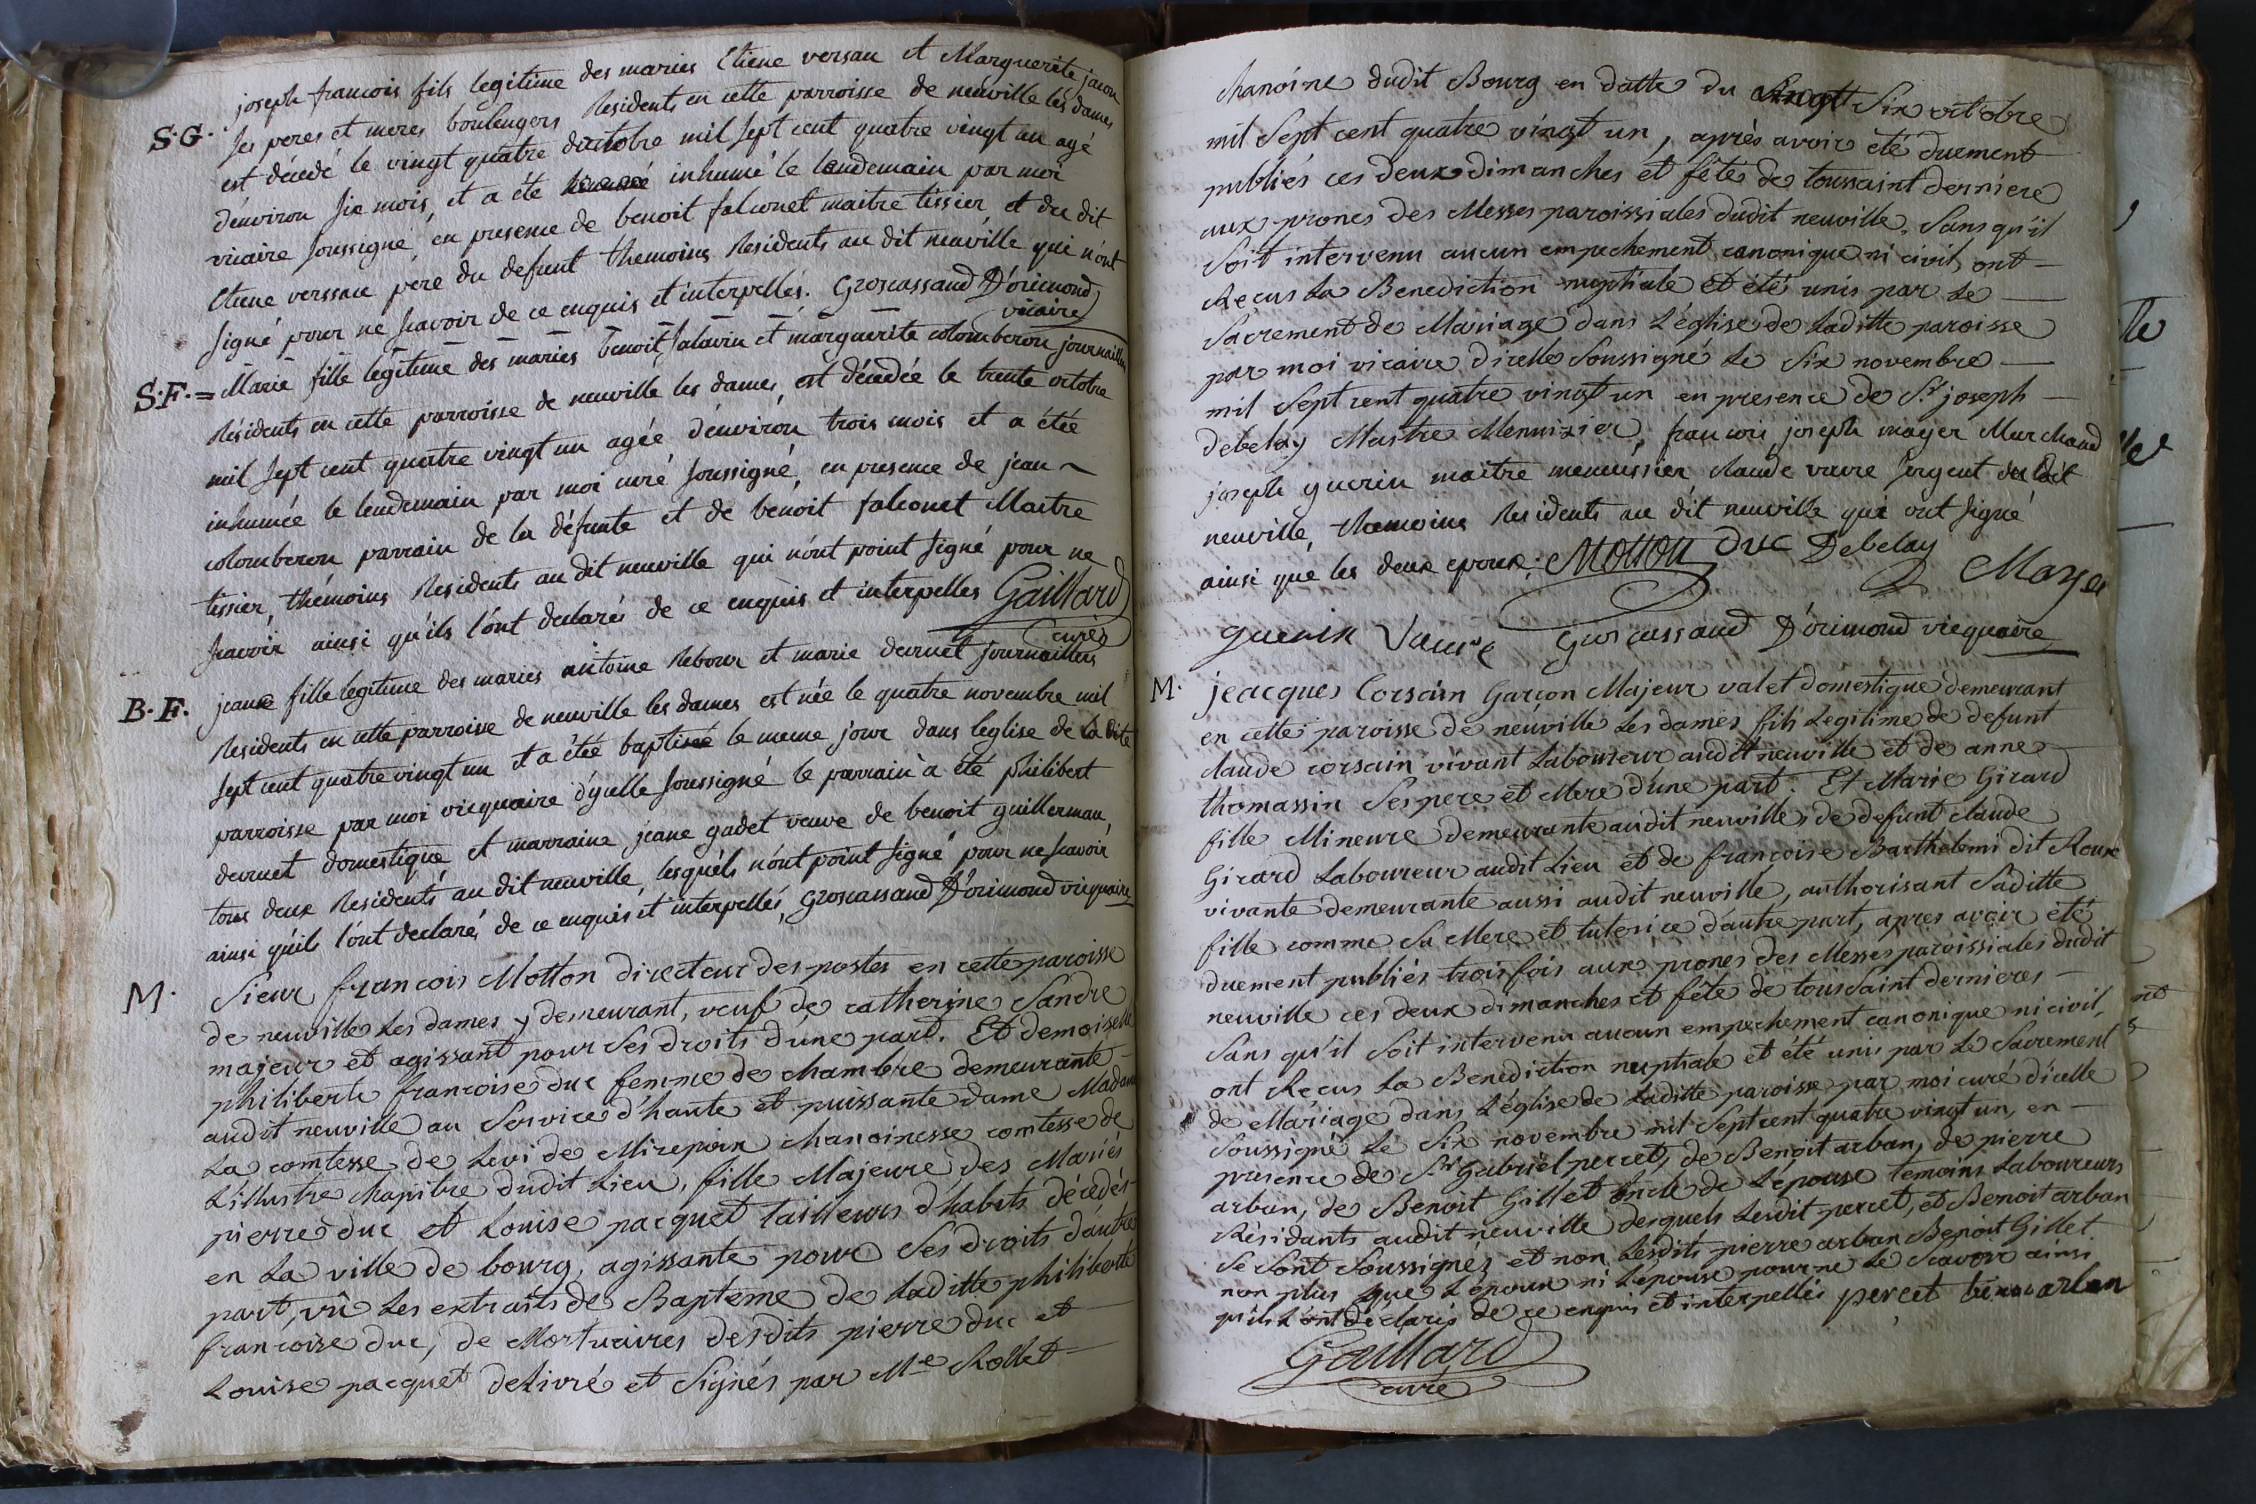 joseph francois fils legitime des maries Etiene versau et Marguerite jacon
S.G. ses peres et meres boulengers Residents en cette parroisse de neuville les dames
est décédé le vingt quatre d'octobre mil sept cent quatre vingt un agé
d'environ six mois, et a éte inhumé le lendemain par moi
vicaire soussigné, en presence de benoit falconet maitre tissier et du dit
Etiene verssau pere du defunt themoins Residents au dit neuville qui n'ont
signé pour ne scavoir de ce enquis et interpellés. Groscassand D'orimond
vicaire
S.F. = Marie fille legitime des maries benoit salavin et marguerite colomberon journaillers
Résidents en cette parroisse de neuville les dames, est décedée le trente octobre
mil sept cent quatre vingt un agée d'environ trois mois et a étée
inhumée le lendemain par moi curé soussigné, en presence de jean ~
colomberon parrain de la défunte et de bénoit falconet Maitre
tissier, thémoins Residents au dit neuville qui n'ont point signé pour ne
scavoir ainsi qu'ils l'ont declarés de ce enquis et interpelles Gaillard
curé
B.F. jeane fille legitime des maries antoine Rebour et marie decruet journaillers
Residents en cette parroisse de neuville les dames est née le quatre novembre mil
sept cent quatre vingt un et a étée baptisée le meme jour dans leglise de la dite
parroisse par moi vicquaire d'ycelle soussigné le parrain a été philibert
decruet domestique et marraine jeane gadet veuve de benoit guillerman,
tous deux Residents au dit neuville, lesquels n'ont point signé pour ne scavoir
ainsi qu'ils l'ont declarés de ce enquis et interpellés, Groscassand D'orimond vicquaire
M. Sieur françois Motton directeur des postes en cette paroisse
de neuville les dames y demeurant, veuf de catherine Sandre
majeur et agissant pour ses droits d'une part. Et demoiselle
philiberte françoise duc femme de chambre demeurante
audit neuville au Service d'haute et puissante dame Madame
La comtesse de Levi de Mirepoix chanoinesse comtesse de
L'illustre chapitre dudit Lieu, fille Majeure des Mariés
pierre duc et Louise pacquet tailleurs d'habits décedés
en La ville de bourg, agissante pour ses droits d'autre
part, vû Les extraits de Baptême de Laditte philiberte
françoise duc, de Mortuaires desdits pierre duc et
Louise pacquet delivré et signés par Me Rollet
chanoine dudit Bourg en datte du vingt Six octobre
mil Sept cent quatre vingt un, après avoir été duement
publiés ces deux dimanches et fête de toussaint derniere
aux prones des Messes paroissiales dudit neuville, Sans qu'il
soit intervenu aucun empechement canonique ni civil, ont
Recus La Benediction nuptiale et été unis par Le
Sacrement de Mariage dans L'église de Laditte paroisse
par moi vicaire d'icelle Soussigné Le Six novembre
mil Sept cent quatre vingt un en presence de Sr joseph
debelay Maitre Menuisier, françois joseph mayer Marchand
joseph guerin maitre menuissier claude vavre sergent du dit
neuville, themoins Residents au dit neuville qui ont signé
ainsi que les deux epoux: Motton duc Debelay Mayer
guerin Vavre Groscassand D'orimond vicquaire
M. jeacques Corsain Garçon Majeur valet domestique demeurant
en cette paroisse de neuville Les dames fils Legitime de defunt
claude corsain vivant Laboureur audit neuville et de anne
thomassin Ses pere et Mere d'une part. Et Marie Girard
fille Mineure demeurante audit neuville, de defunt claude
Girard Laboureur audit Lieu et de françoise Barthelemi dit Roux
vivante demeurante aussi audit neuville, authorisant Saditte
fille comme Sa Mere et tutrice d'autre part, apres avoir été
duement publiés trois fois aux prones des Messes paroissiales dudit
neuville ces deux dimanches et fête de toussaint dernieres
Sans qu'il soit intervenu aucun empechement canonique ni civil,
ont Reçus La Benediction nuptiale et été unis par Le Sacrement
de Mariage dans L'église de Laditte paroisse par moi curé d'icelle
Soussigné Le Six novembre mil Sept cent quatre vingt un, en
presence de Sr Gabriel percet, de Benoit arban, de pierre
arban, de Benoit Gillet oncle de L'épouse temoins Laboureurs
Résidants audit neuville desquels Lesdit percet, et Benoit arban
Se Sont Soussignés et non Lesdits pierre arban Benoit Gillet
non plus que L'époux ni L'épouse pour ne Le Scavoir ainsi
qu'ils L'ont déclarés de ce enquis et interpellés percet benoi arban
Gaillard
curé